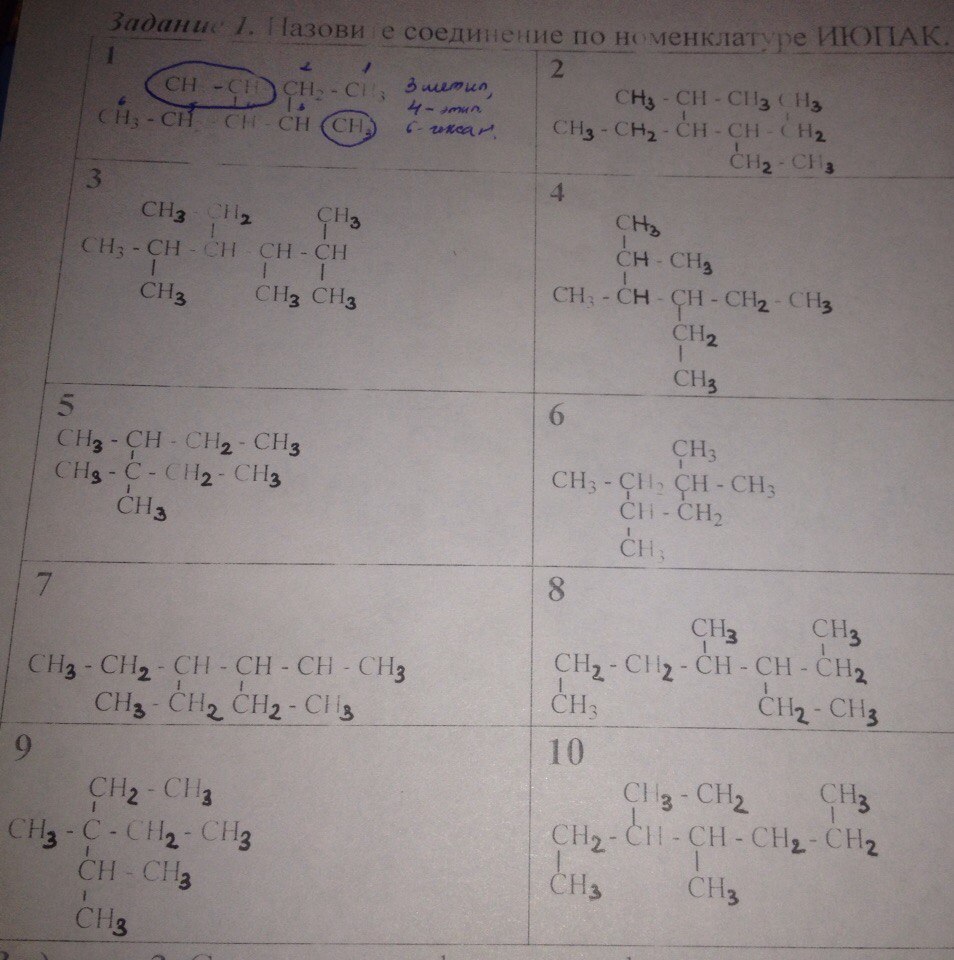 Задание 1. Назовите соединение по номенклатуре ИЮПАК.
1
2 1
CH3 - CH2 CH2 - CH3 3 метил,
6 5 3 4 - этил
CH3 - CH2 - CH - CH CH3 6 - гексан.
2
CH3 - CH - CH3 CH3
CH3 - CH2 - CH - CH - CH2
CH2 - CH3
3
CH3 - CH2 CH3
CH3 - CH - CH - CH - CH
CH3 CH3 CH3
4
CH3
CH - CH3
CH3 - CH - CH - CH2 - CH3
CH2
CH3
5
CH3 - CH - CH2 - CH3
CH3 - C - CH2 - CH3
CH3
6
CH3
CH3 - CH2 CH - CH3
CH - CH2
CH3
7
CH3 - CH2 - CH - CH - CH - CH3
CH3 - CH2 CH2 - CH3
8
CH3 CH3
CH2 - CH2 - CH - CH - CH2
CH3 CH2 - CH3
9
CH2 - CH3
CH3 - C - CH2 - CH3
CH - CH3
CH3
10
CH3 - CH2 CH3
CH2 - CH - CH - CH2 - CH2
CH3 CH3